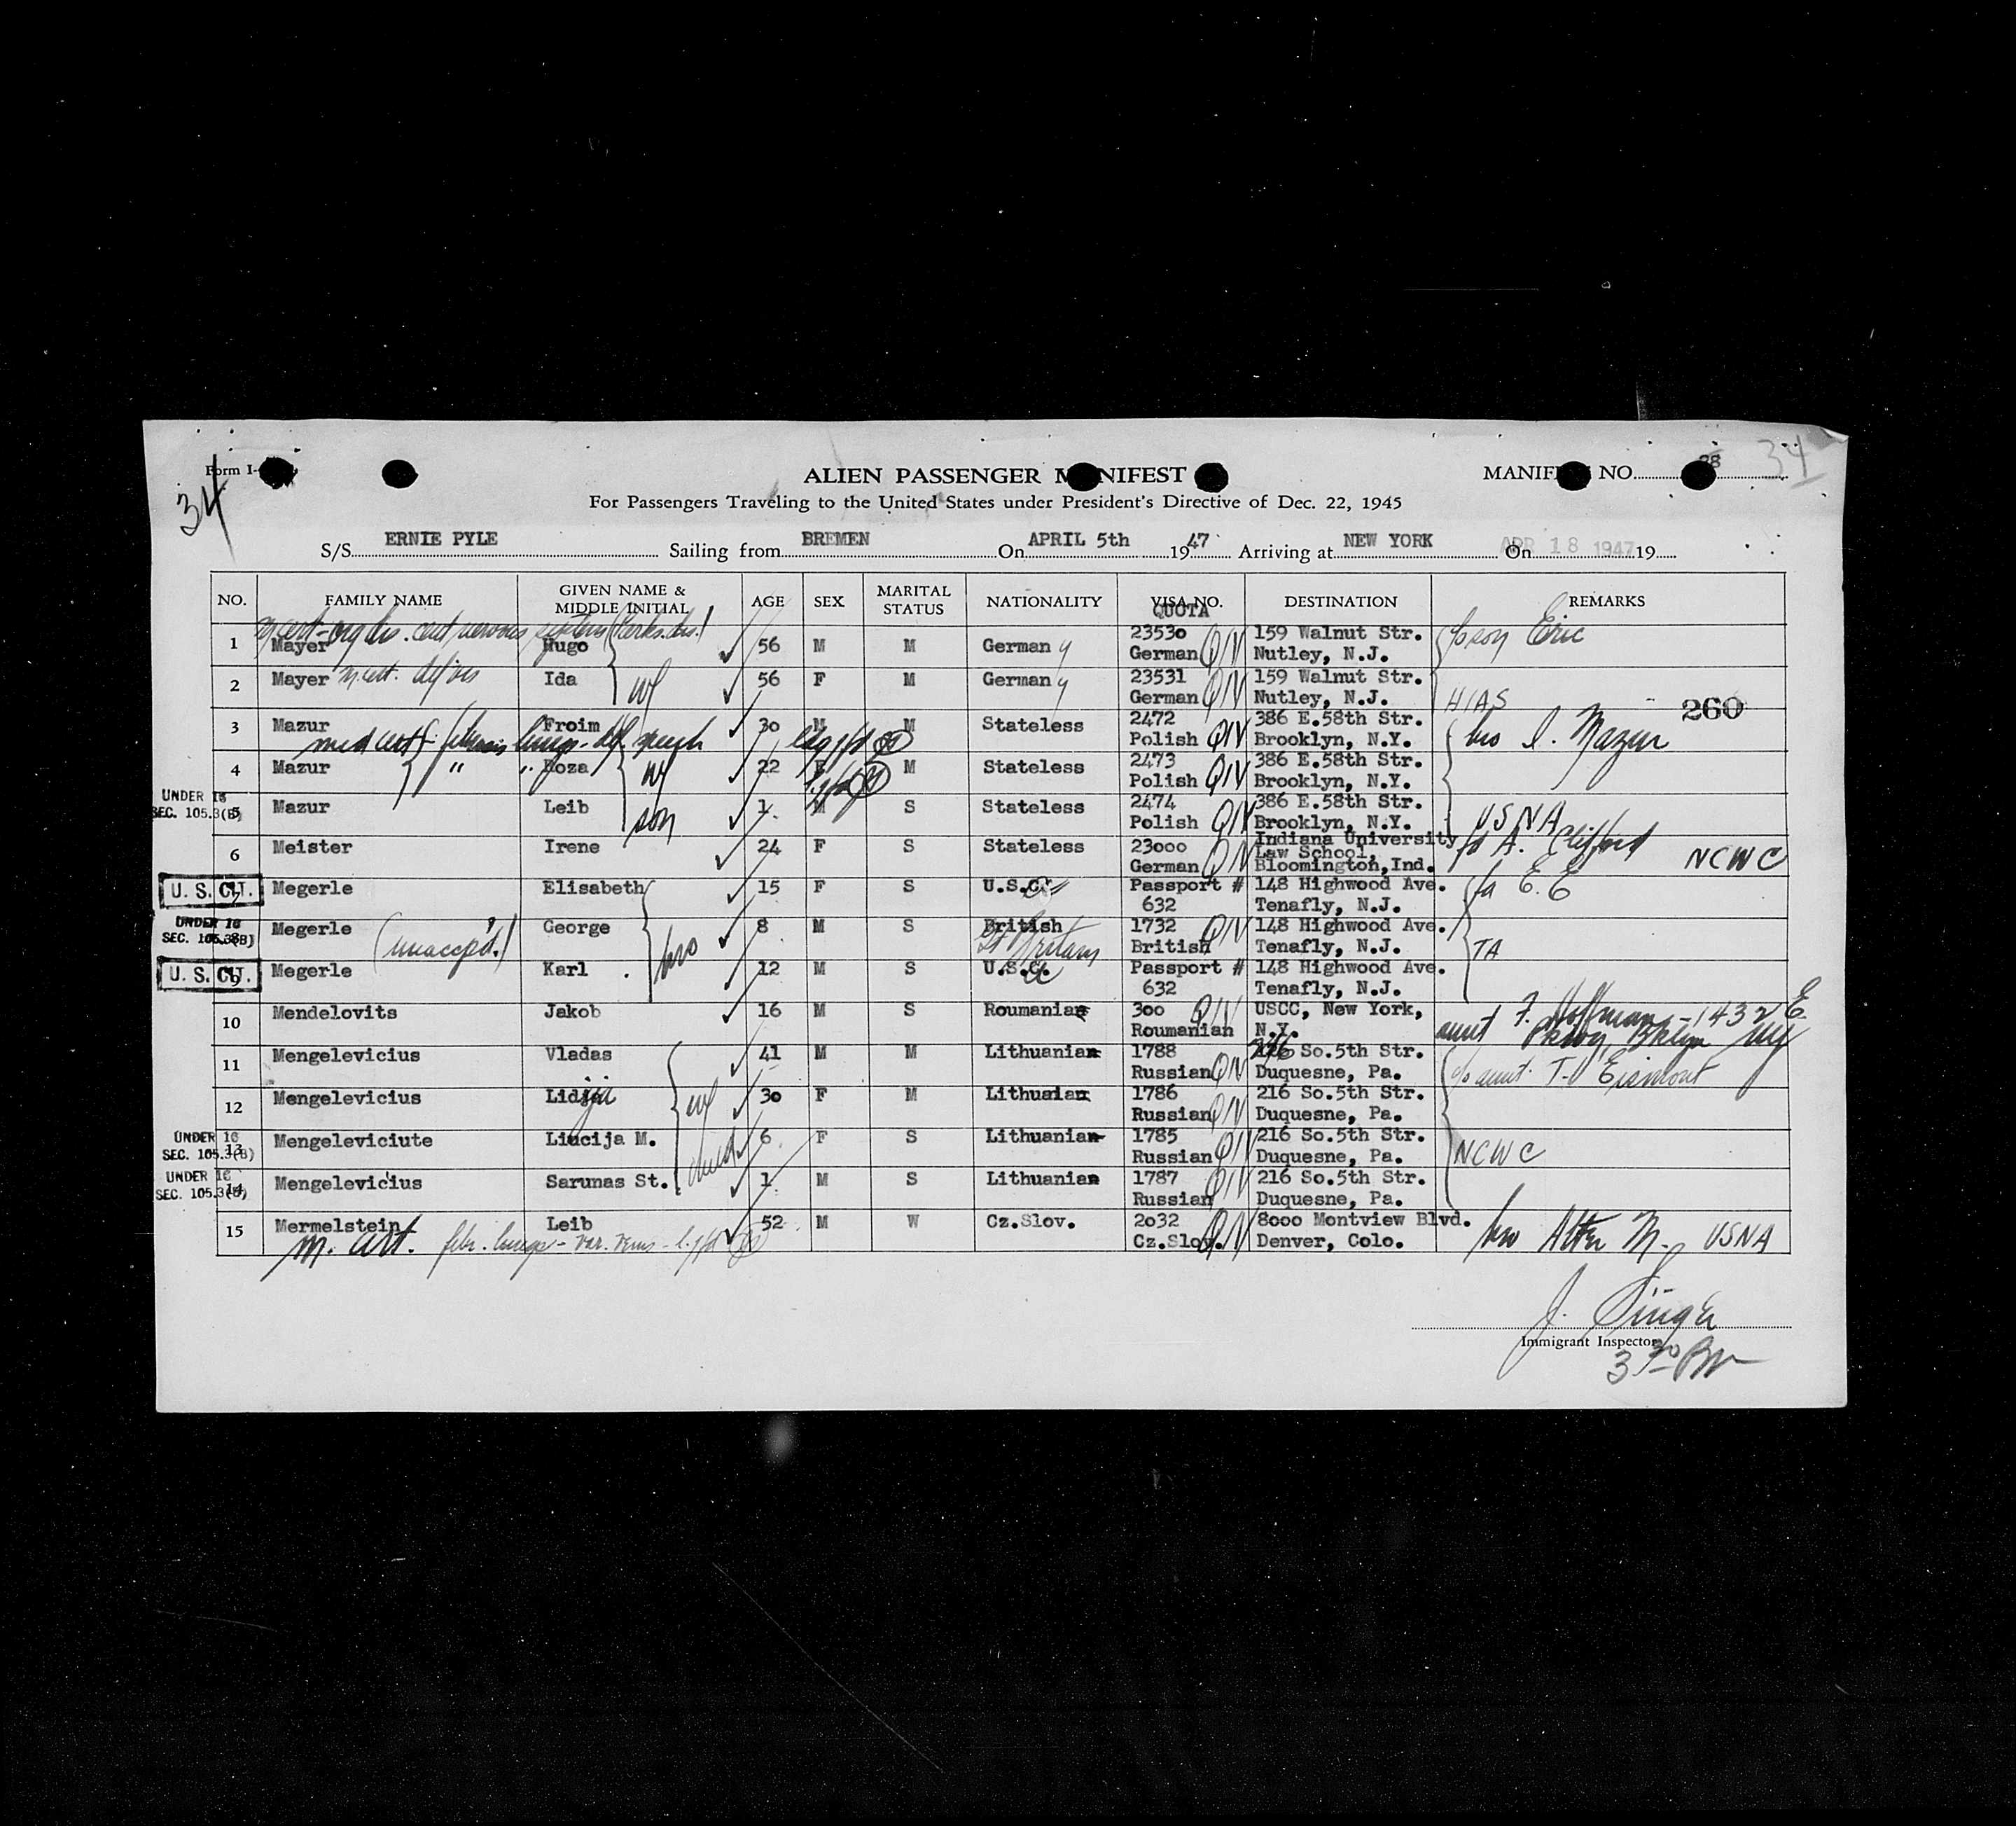 Form I-
34
ALIEN PASSENGER M NIFEST
MANIF NO. 28 34
For Passengers Traveling to the United States under President's Directive of Dec. 22, 1945
S/S ERNIE PYLE Sailing from BREMEN On APRIL 5th 1947 Arriving at NEW YORK On APR 18 1947 19
NO. FAMILY NAME GIVEN NAME & MIDDLE INITIAL AGE SEX MARITAL STATUS NATIONALITY VISA NO. QUOTA DESTINATION REMARKS
m cert - org dis. cent nervous system
1 Mayer Hugo 56 M M German y 23530 159 Walnut Str. son Eric
German QIV Nutley, N.J.
2 Mayer m. cert. Ida wf 56 F M German y 23531 159 Walnut Str.
German QIV Nutley, N.J. HIAS
260
3 Mazur Froim 30 M M Stateless 2472 386 E.58th Str.
med cert lungs - def. speech Polish QIV Brooklyn, N.Y. bro I. Mazur
4 Mazur " " Roza wf 22 F M Stateless 2473 386 E.58th Str.
Polish QIV Brooklyn, N.Y.
UNDER 16
SEC. 105.3(B) 5 Mazur Leib son 1 M S Stateless 2474 386 E.58th Str.
Polish QIV Brooklyn, N.Y. USNA
6 Meister Irene 24 F S Stateless 23000 Indiana University fd A. Clifford NCWC
German QIV Law School,
Bloomington,Ind.
U. S. CIT. 7 Megerle Elisabeth 15 F S U.S.C. Passport # 148 Highwood Ave. fa E. E
632 Tenafly, N.J.
UNDER 16
SEC. 105.3(B) 8 Megerle (unaccpd.) George bro 8 M S British 1732 QIV 148 Highwood Ave.
Gt Britain British Tenafly, N.J. TA
U. S. CIT. 9 Megerle Karl 12 M S U.S.C. Passport # 148 Highwood Ave.
632 Tenafly, N.J.
10 Mendelovits Jakob 16 M S Roumanian 300 QIV USCC, New York, aunt F. Hoffman - 1432 E.
Roumanian N.Y. Pkwy, Bklyn NY
11 Mengelevicius Vladas 41 M M Lithuanian 1788 216 So.5th Str.
Russian QIV Duquesne, Pa. c/o aunt T. Eismont
12 Mengelevicius Lidija wf 30 F M Lithuaian 1786 216 So.5th Str.
Russian QIV Duquesne, Pa.
UNDER 16
SEC. 105.3(B) 13 Mengeleviciute Liucija M. child 6 F S Lithuanian 1785 216 So.5th Str.
Russian QIV Duquesne, Pa. NCWC
UNDER 16
SEC. 105.3(B) 14 Mengelevicius Sarunas St. 1 M S Lithuanian 1787 216 So.5th Str.
Russian QIV Duquesne, Pa.
15 Mermelstein Leib 52 M W Cz.Slov. 2032 8000 Montview Blvd.
m. cert. fibr. lungs - var. veins Cz.Slov. QIV Denver, Colo. bro Alter M. USNA
J. Singer
Immigrant Inspector
3 30 Pm